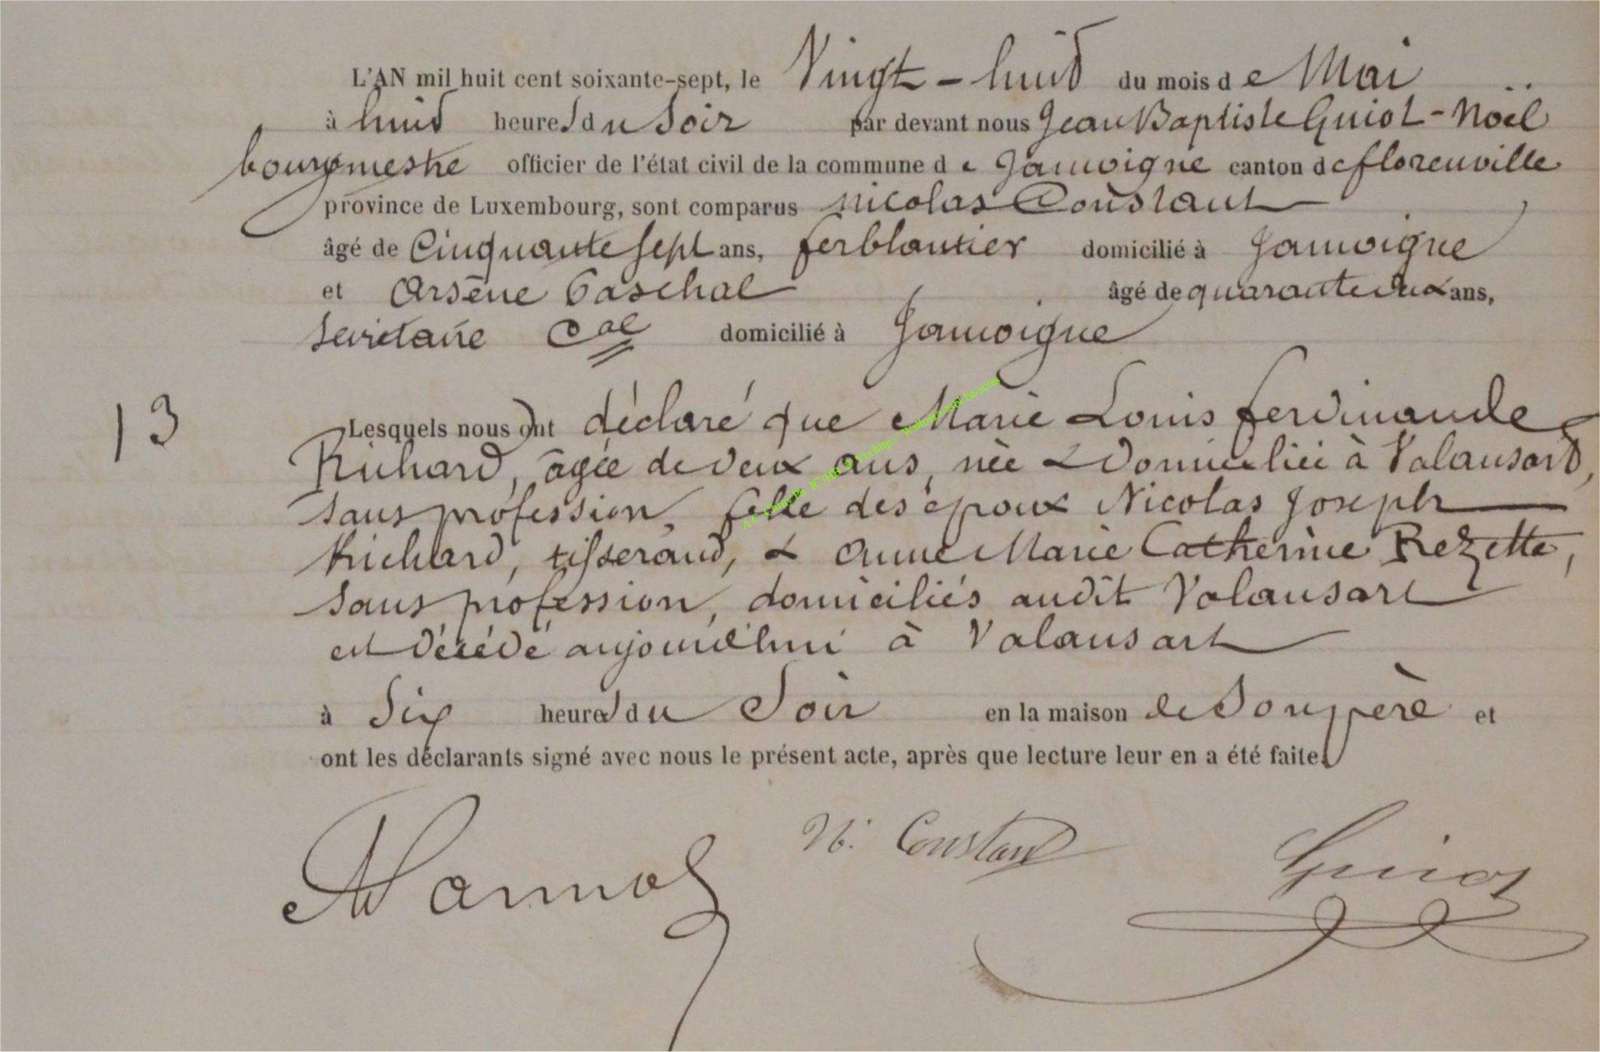 L'AN mil huit cent soixante-sept, le Vingt-huit du mois de Mai
à huit heures du Soir par devant nous Jean Baptiste Guiot-Noël
bourgmestre officier de l'état civil de la commune de Jamoigne canton de florenville
province de Luxembourg, sont comparus Nicolas Constant
âgé de Cinquante sept ans, ferblantier domicilié à Jamoigne
et Arsène Paschal âgé de quarante deux ans,
Secrétaire Cal domicilié à Jamoigne
13
Lesquels nous ont déclaré que Marie Louis ferdinande
Richard, âgée de deux ans, née & Domiciliée à Valansard,
sans profession, fille des époux Nicolas Joseph
Richard, tisserand, & Anne Marie Catherine Rezette,
sans profession, domiciliés audit Valansart
est décédé aujourd'hui à Valansart
à Six heures du Soir en la maison de Son père et
ont les déclarants signé avec nous le présent acte, après que lecture leur en a été faite.
N. Constant
Guiot